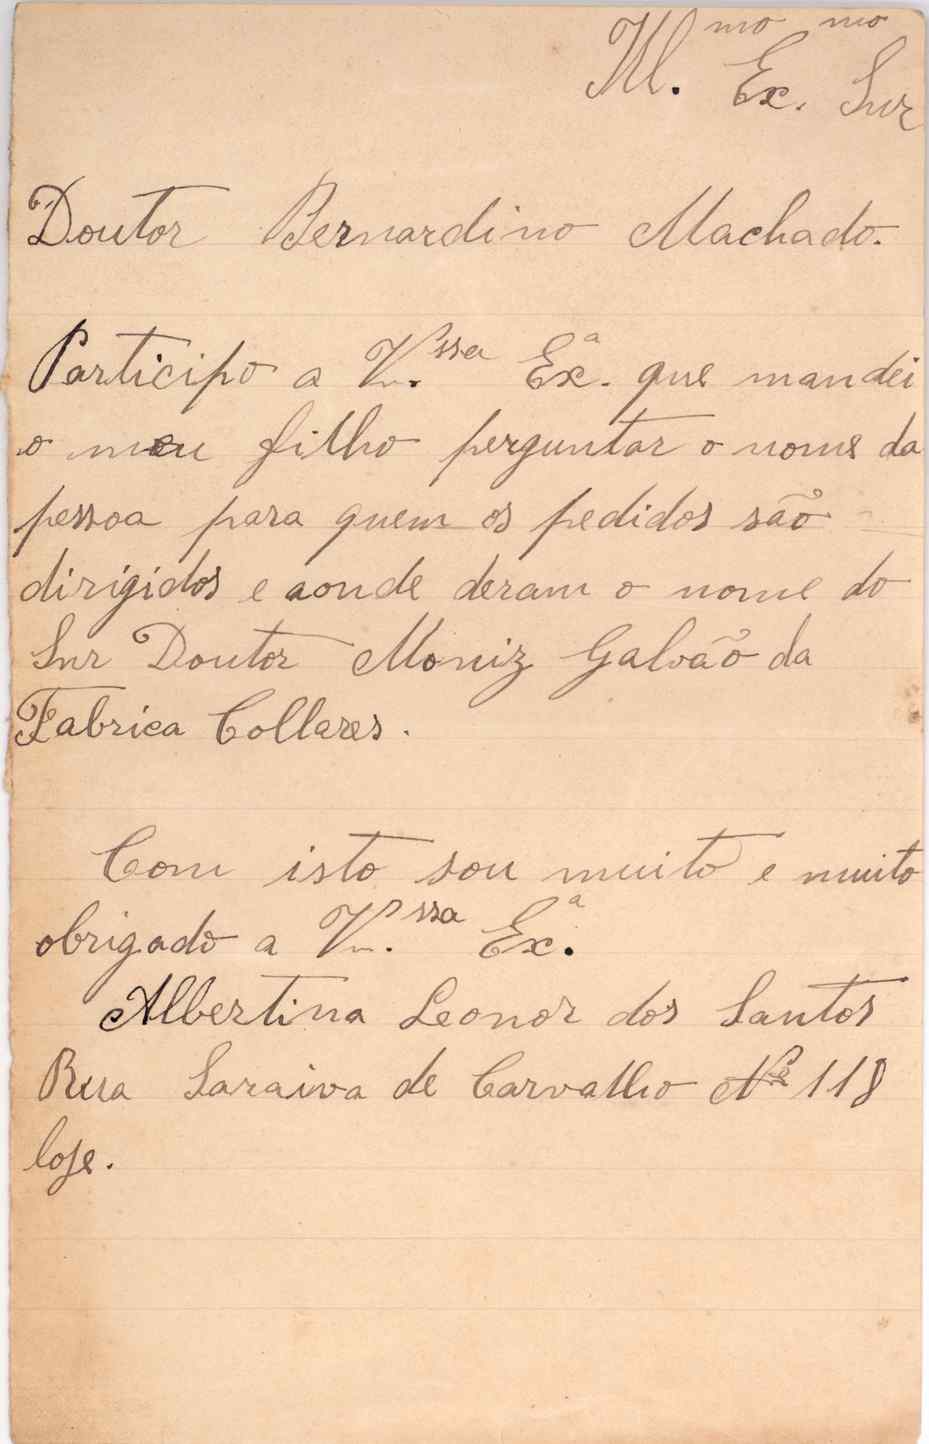 Ill.mo Ex.mo Snr
Doutor Bernardino Machado.
Participo a V.ssa Ex.ª que mandei
o meu filho perguntar o nome da
pessoa para quem os pedidos são
dirigidos e aonde deram o nome do
Snr Doutor Moniz Galvão da
Fabrica Collares.
Com isto sou muito e muito
obrigado a V.ssa Ex.ª
Albertina Leonor dos Santos
Rua Saraiva de Carvalho Nº 118
loje.